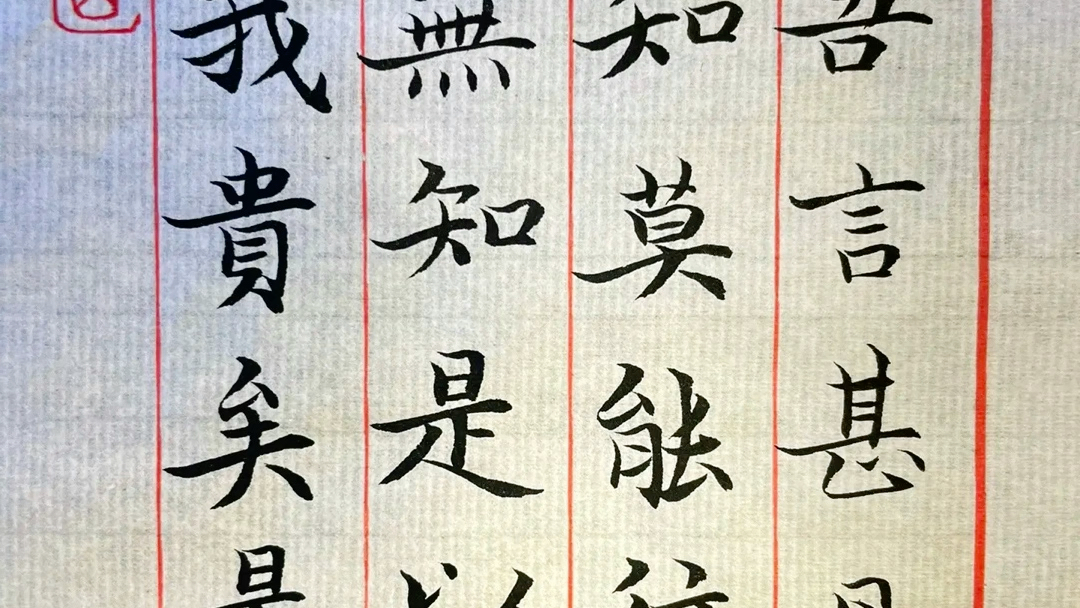 吾言甚
知莫能行
無知是以
我貴矣是